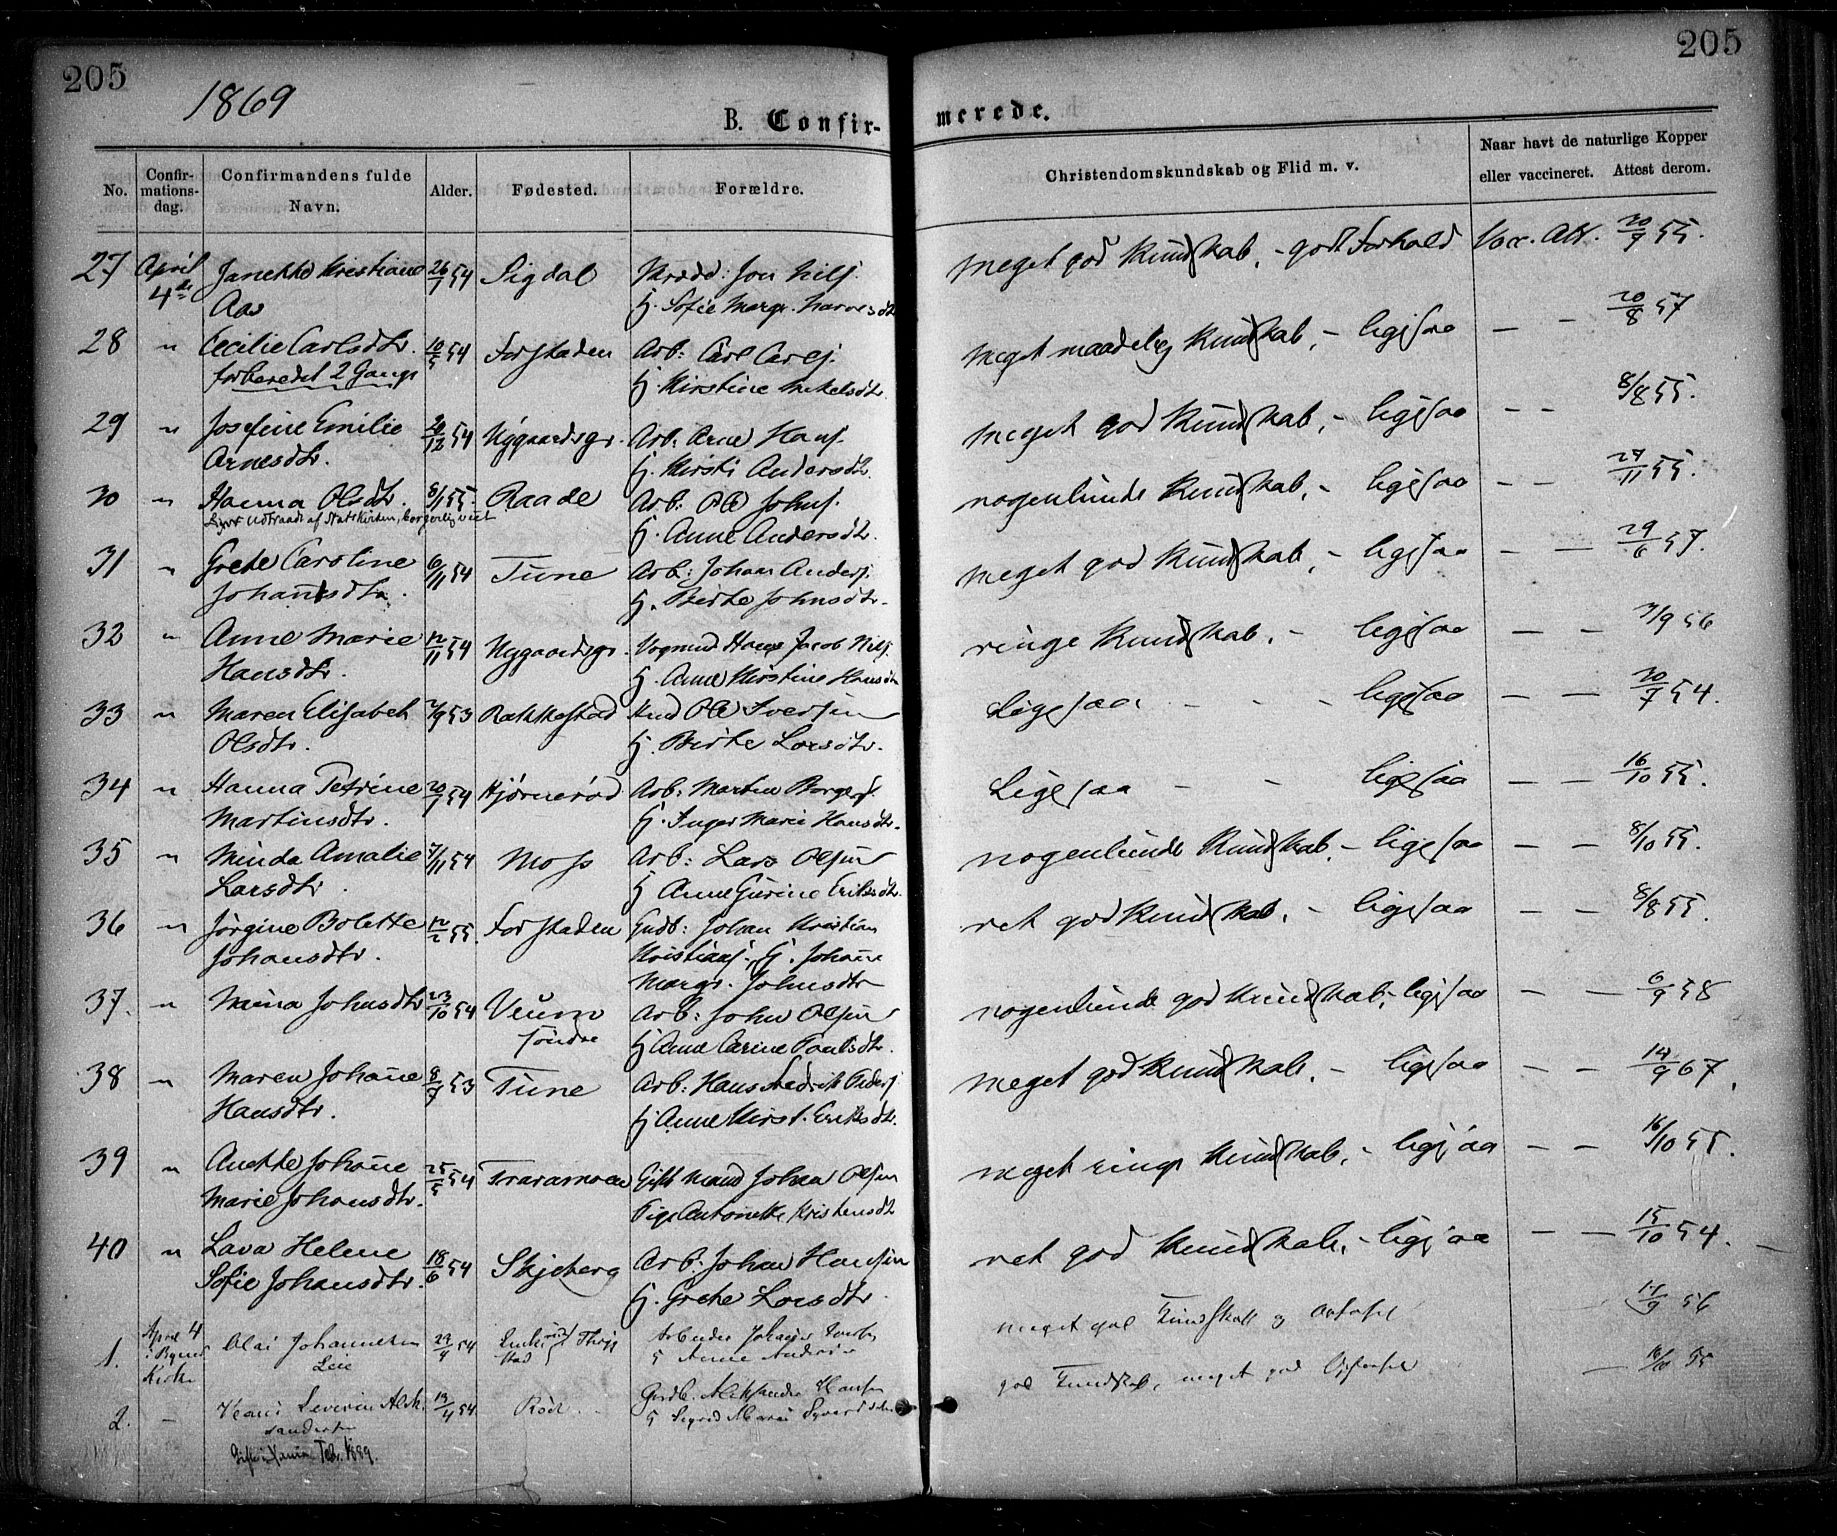 205
205
1869
B. Confir-
merede.
No.
Confir-
mations-
dag.
Confirmandens fulde
Navn.
Alder.
Fødested.
Forældre.
Christendomskundskab og Flid m. v.
Naar havt de naturlige Kopper
eller vaccineret. Attest derom.
27 April 26/7 54 Sigdal Jon Nilss. meget god Kundskab, - godt Forhold Vacc. Att. 20/9 55.
4de Aas
28 " Cecilie Carlsdtr. 10/5 54 Forstaden Arb: Carl Carls. meget maadelig Kundskab, - ligesaa — — 20/8 57
forberedet 2 Gange
29 " Josefine Emilie 20/12 54 Nygaardsgr. Arb: Arne Hans. meget god Kundskab, - ligesaa — — 8/8 55.
Arnesdtr. H. Kirsti Andersdtr.
30 " Hanna Olsdtr. 8/1 55. Raade Arb: Ole Johns. nogenlunde Kundskab, - ligesaa — — 27/11 55.
udtraadt af Statskirken, borgerlig viet
H. Anne Andersdtr.
31 " Grete Caroline 6/11 54 Tune Arb: Johan Anders. meget god Kundskab, - ligesaa — — 29/6 57.
Johansdtr. H. Berte Johnsdtr.
32 " Anne Marie 12/11 54 Nygaardsgr. Vognmd Hans Jacob Nils. ringe Kundskab. - ligesaa — — 7/9 56
Hansdtr. H. Anne Kirstine Hansdtr
33 " Maren Elisabet 7/9 53 Rakkestad Ole Iversen Ligesaa - - ligesaa — — 20/7 54.
Olsdtr. H. Berte Larsdtr.
34 " Hanna Petrine 20/7 54 Hjørnerød Arb: Martin Borgers. Ligesaa - - ligesaa — — 16/10 55.
Martinsdtr. H. Inger Marie Hansdtr.
35 " Minda Amalie 7/11 54 Moss Arb: Lars Olsen nogenlunde Kundskab. - ligesaa — — 8/10 55.
Larsdtr. H Anne Gurine Eriksdtr.
36 " Jørgine Bolette 12/2 55. Forstaden Gudb: Johan Kristian ret god Kundskab, - ligesaa — — 8/8 55.
Johansdtr. Kristians. H. Johane
Margr. Johnsdtr
37. " Mina Johnsdtr 23/10 54 Veum Arb: John Olsen nogenlunde god Kundskab, - ligesaa — — 6/9 58
søndre H Anne Carine Paulsdtr.
38 " Maren Johane 8/7 53 Tune Arb: Hans Fredrik Peders. meget god Kundskab, - ligesaa — — 14/9 67.
Hansdtr. H Anne Kirst. Eriksdtr.
39 " Anette Johane 25/5 54 Traramoen Gift Mand Johan Olsen meget ringe Kundskab, - ligesaa — — 16/10 55.
Marie Johansdtr. Pige Antonette Kristensdtr
40 " Lava Helene 18/6 54 Skjeberg Arb: Johan Hansen ret god Kundskab, - ligesaa — — 15/10 54.
Sofie Johansdtr. H. Grete Larsdtr.
1. April 4 Olai Johannesen 29/9 54 Arbeider meget god Kundskab og Opførsel 17/9 56
i Bymes Kirke Leie
2. — Severin Alek- 13/4 54 Rød Gudb. Aleksander Hansen god Kundskab, meget god Opførsel — 55
sandersen
Feb. 1889.